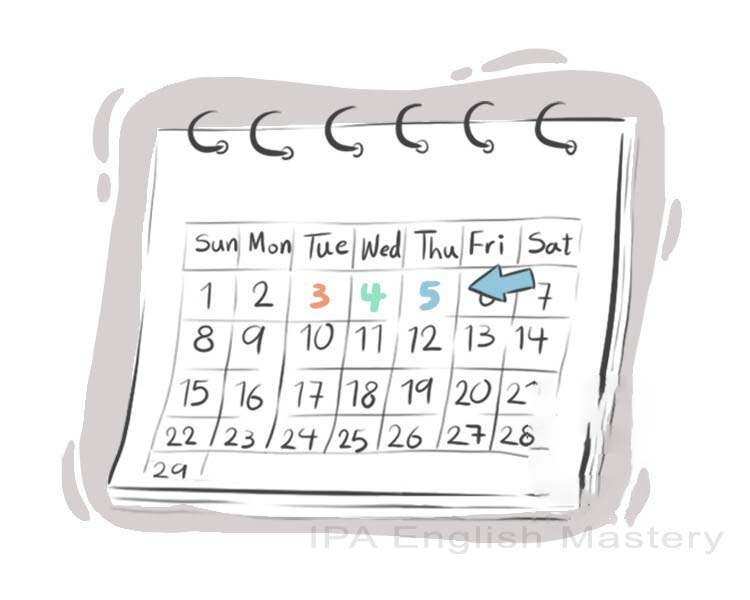 Sun Mon Tue Wed Thu Fri Sat
1 2 3 4 5 7
8 9 10 11 12 13 14
15 16 17 18 19 20
22 23 24 25 26 27 28
29
IPA English Mastery